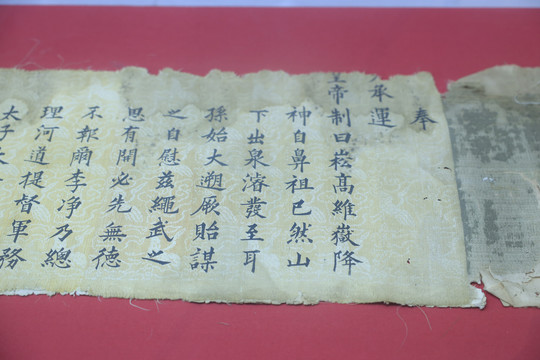 奉
承運
皇帝制曰崧高維嶽降
神自鼻祖巳然山
下出泉濬發至耳
孫始大遡厥貽謀
之自慰兹繩武之
思有開必先無德
不報爾李净乃總
理河道提督軍務
太子太